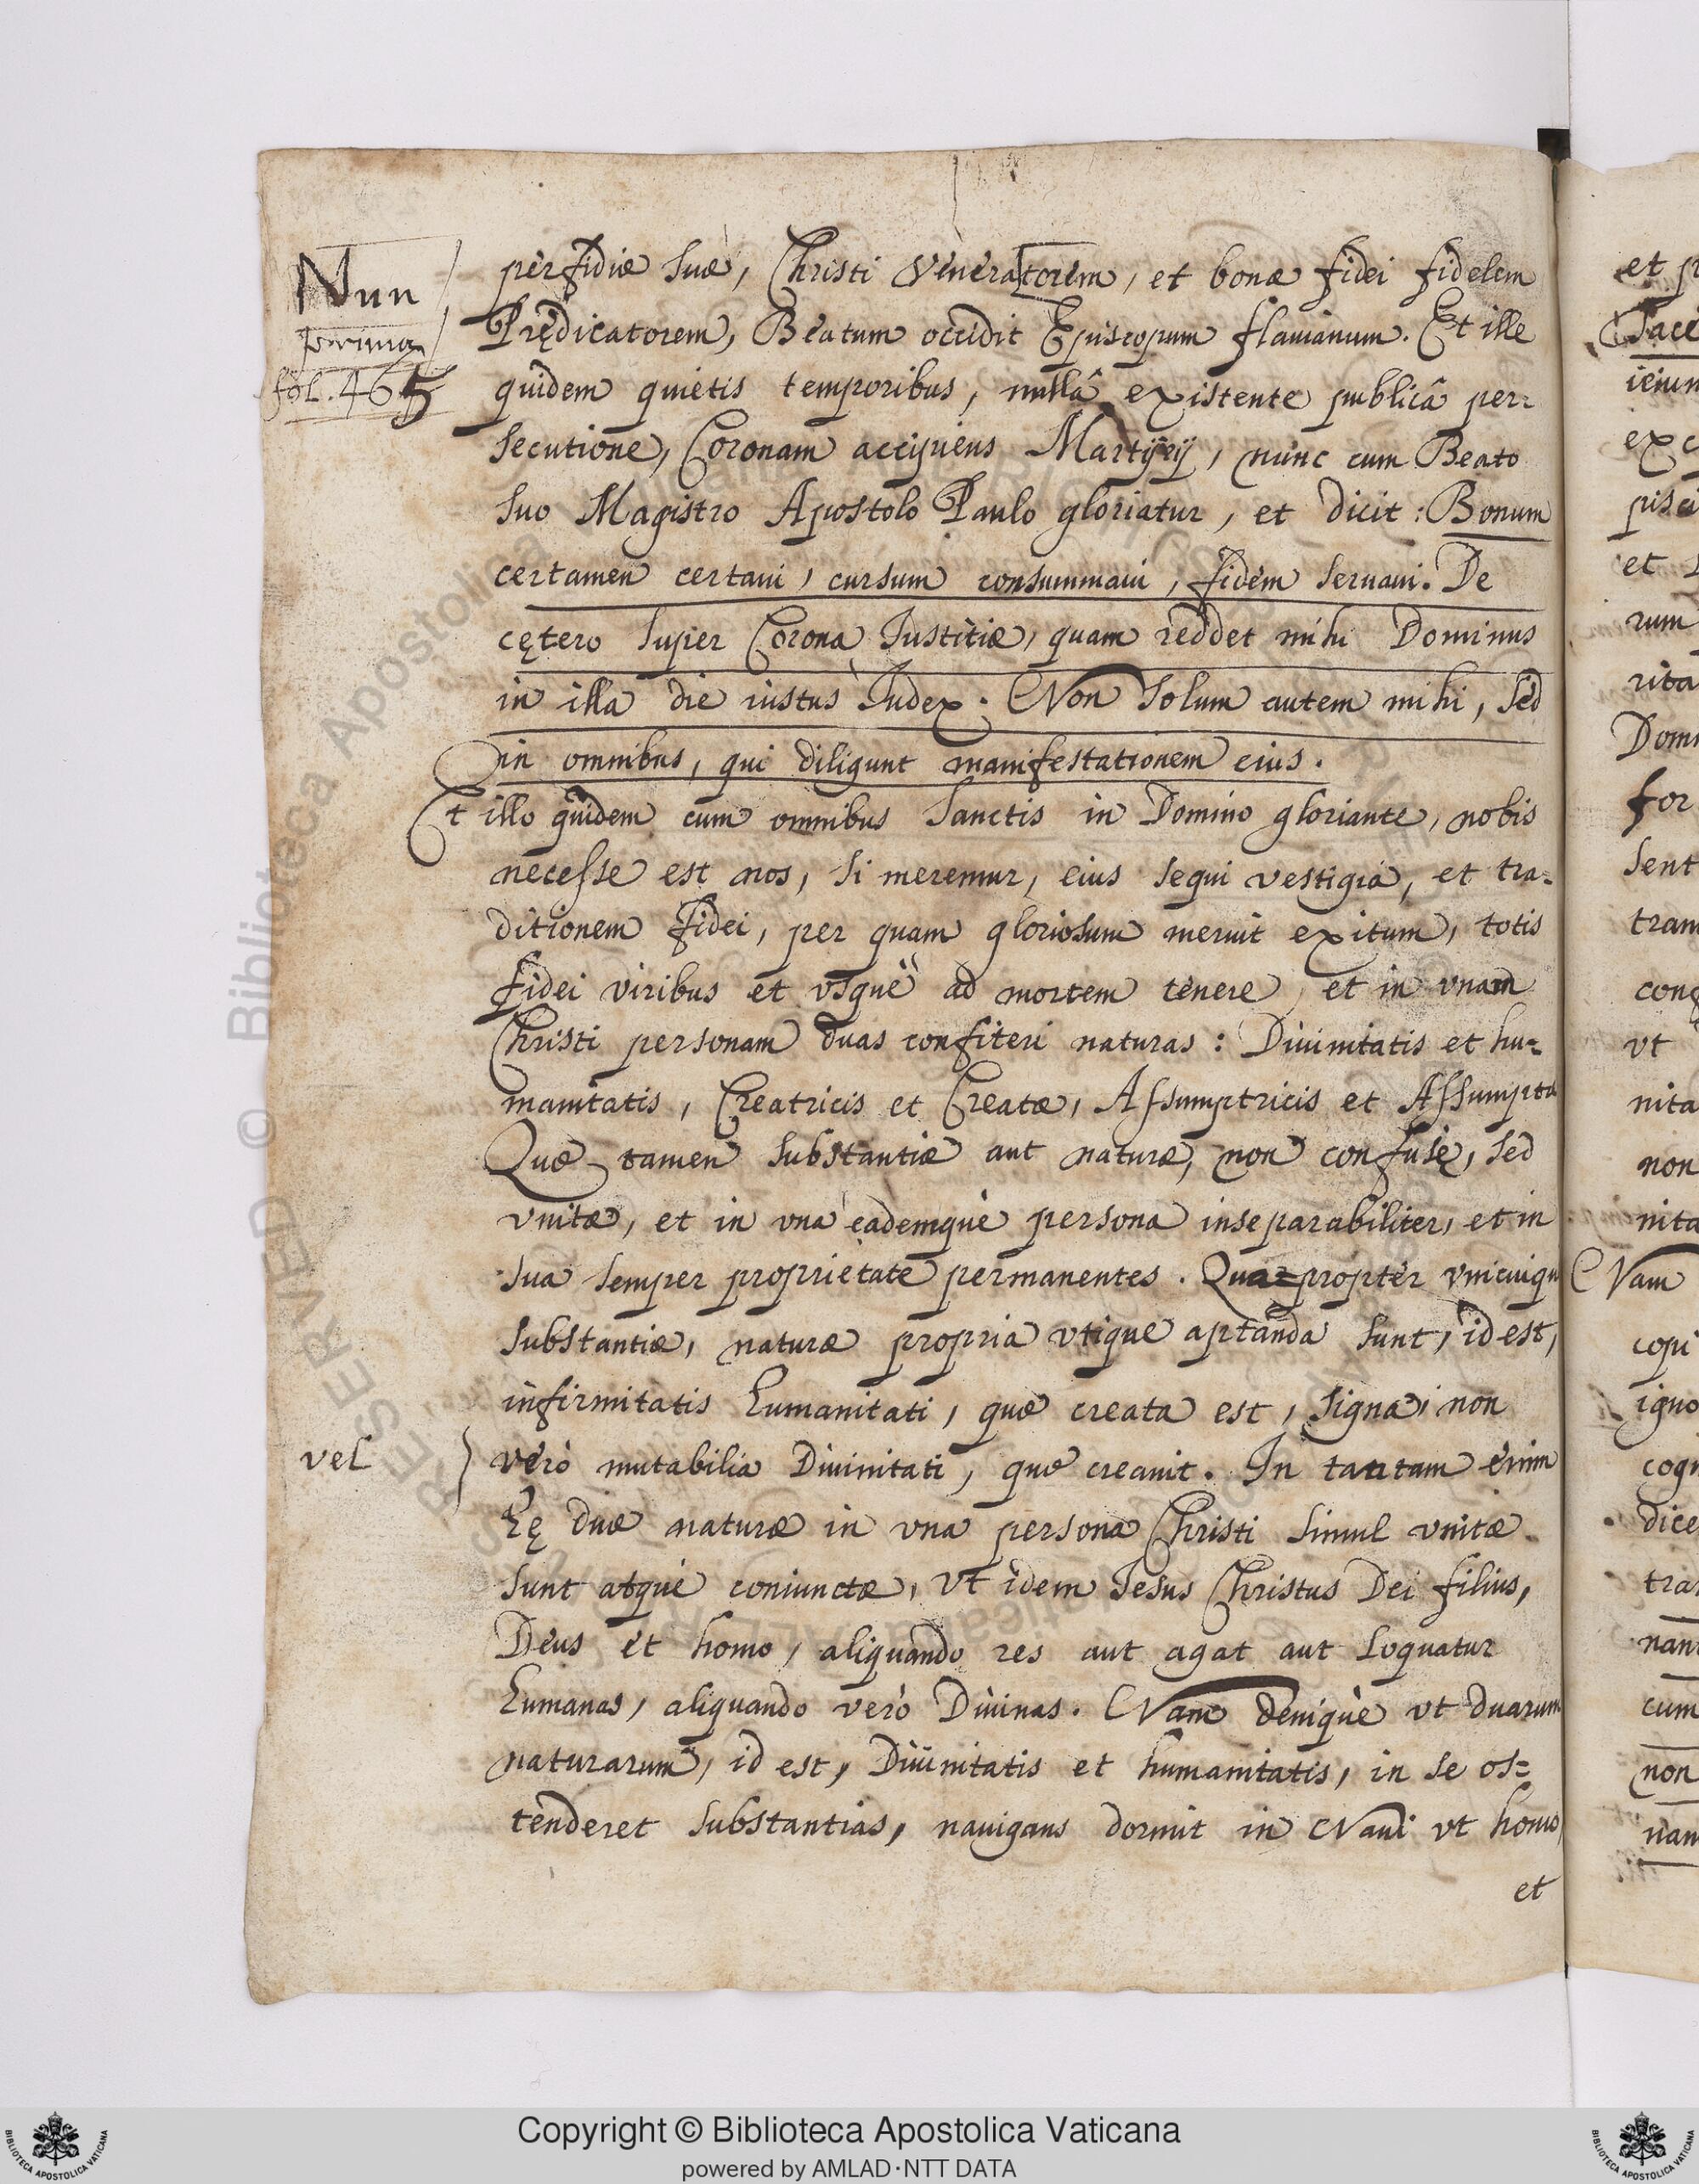 Nun
prima
fol. 465
perfidiæ suæ, Christi Veneratorem, et bonæ fidei fidelem
Prędicatorem, Beatum occidit Episcopum flauianum. Et ille
quidem quietis temporibus, nullâ existente publicâ per=
secutione, Coronam accipiens Martyrij, nunc cum Beato
suo Magistro Apostolo Paulo gloriatur, et dicit: Bonum
certamen certaui, cursum consummaui, fidem seruaui. De
cętero super Corona Iustitiæ, quam reddet mihi Dominus
in illa die iustus Iudex. Non solum autem mihi, sed
in omnibus, qui diligunt manifestationem eius.
Et illo quidem cum omnibus Sanctis in Domino gloriante, nobis
necesse est nos, si meremur, eius sequi vestigia, et tra=
ditionem fidei, per quam gloriosum meruit exitum, totis
fidei viribus et vsque ad mortem tenere, et in vnam
Christi personam duas confiteri naturas: Diuinitatis et hu=
manitatis, Creatricis et Creatæ, Assumptricis et Assumptæ
Quæ tamen substantiæ aut naturæ, non confusè, sed
vnitæ, et in vna eademque persona inseparabiliter, et in
sua semper proprietate permanentes. Quapropter vnicuique
substantiæ, naturæ propria vtique aptanda sunt, id est,
infirmitatis humanitati, quæ creata est, signa, non
vel
verò mutabilia Diuinitati, quæ creauit. In tantam enim
hę duæ naturæ in vna persona Christi simul vnitæ
sunt atque coniunctæ, Vt idem Iesus Christus Dei filius,
Deus et homo, aliquando res aut agat aut loquatur
humanas, aliquando verò Diuinas. Nam denique vt duarum
naturarum, id est, Diuinitatis et humanitatis, in se os=
tenderet substantias, nauigans dormit in Naui vt homo,
et
et
iciun
ex
pisci
et
rum
rita
Dom
for
sent
tram
conf
vt
nita
non
nita
Nam
copi
igno
cogn
dice
tra
nam
cum
non
nam
Copyright © Biblioteca Apostolica Vaticana
powered by AMLAD·NTT DATA